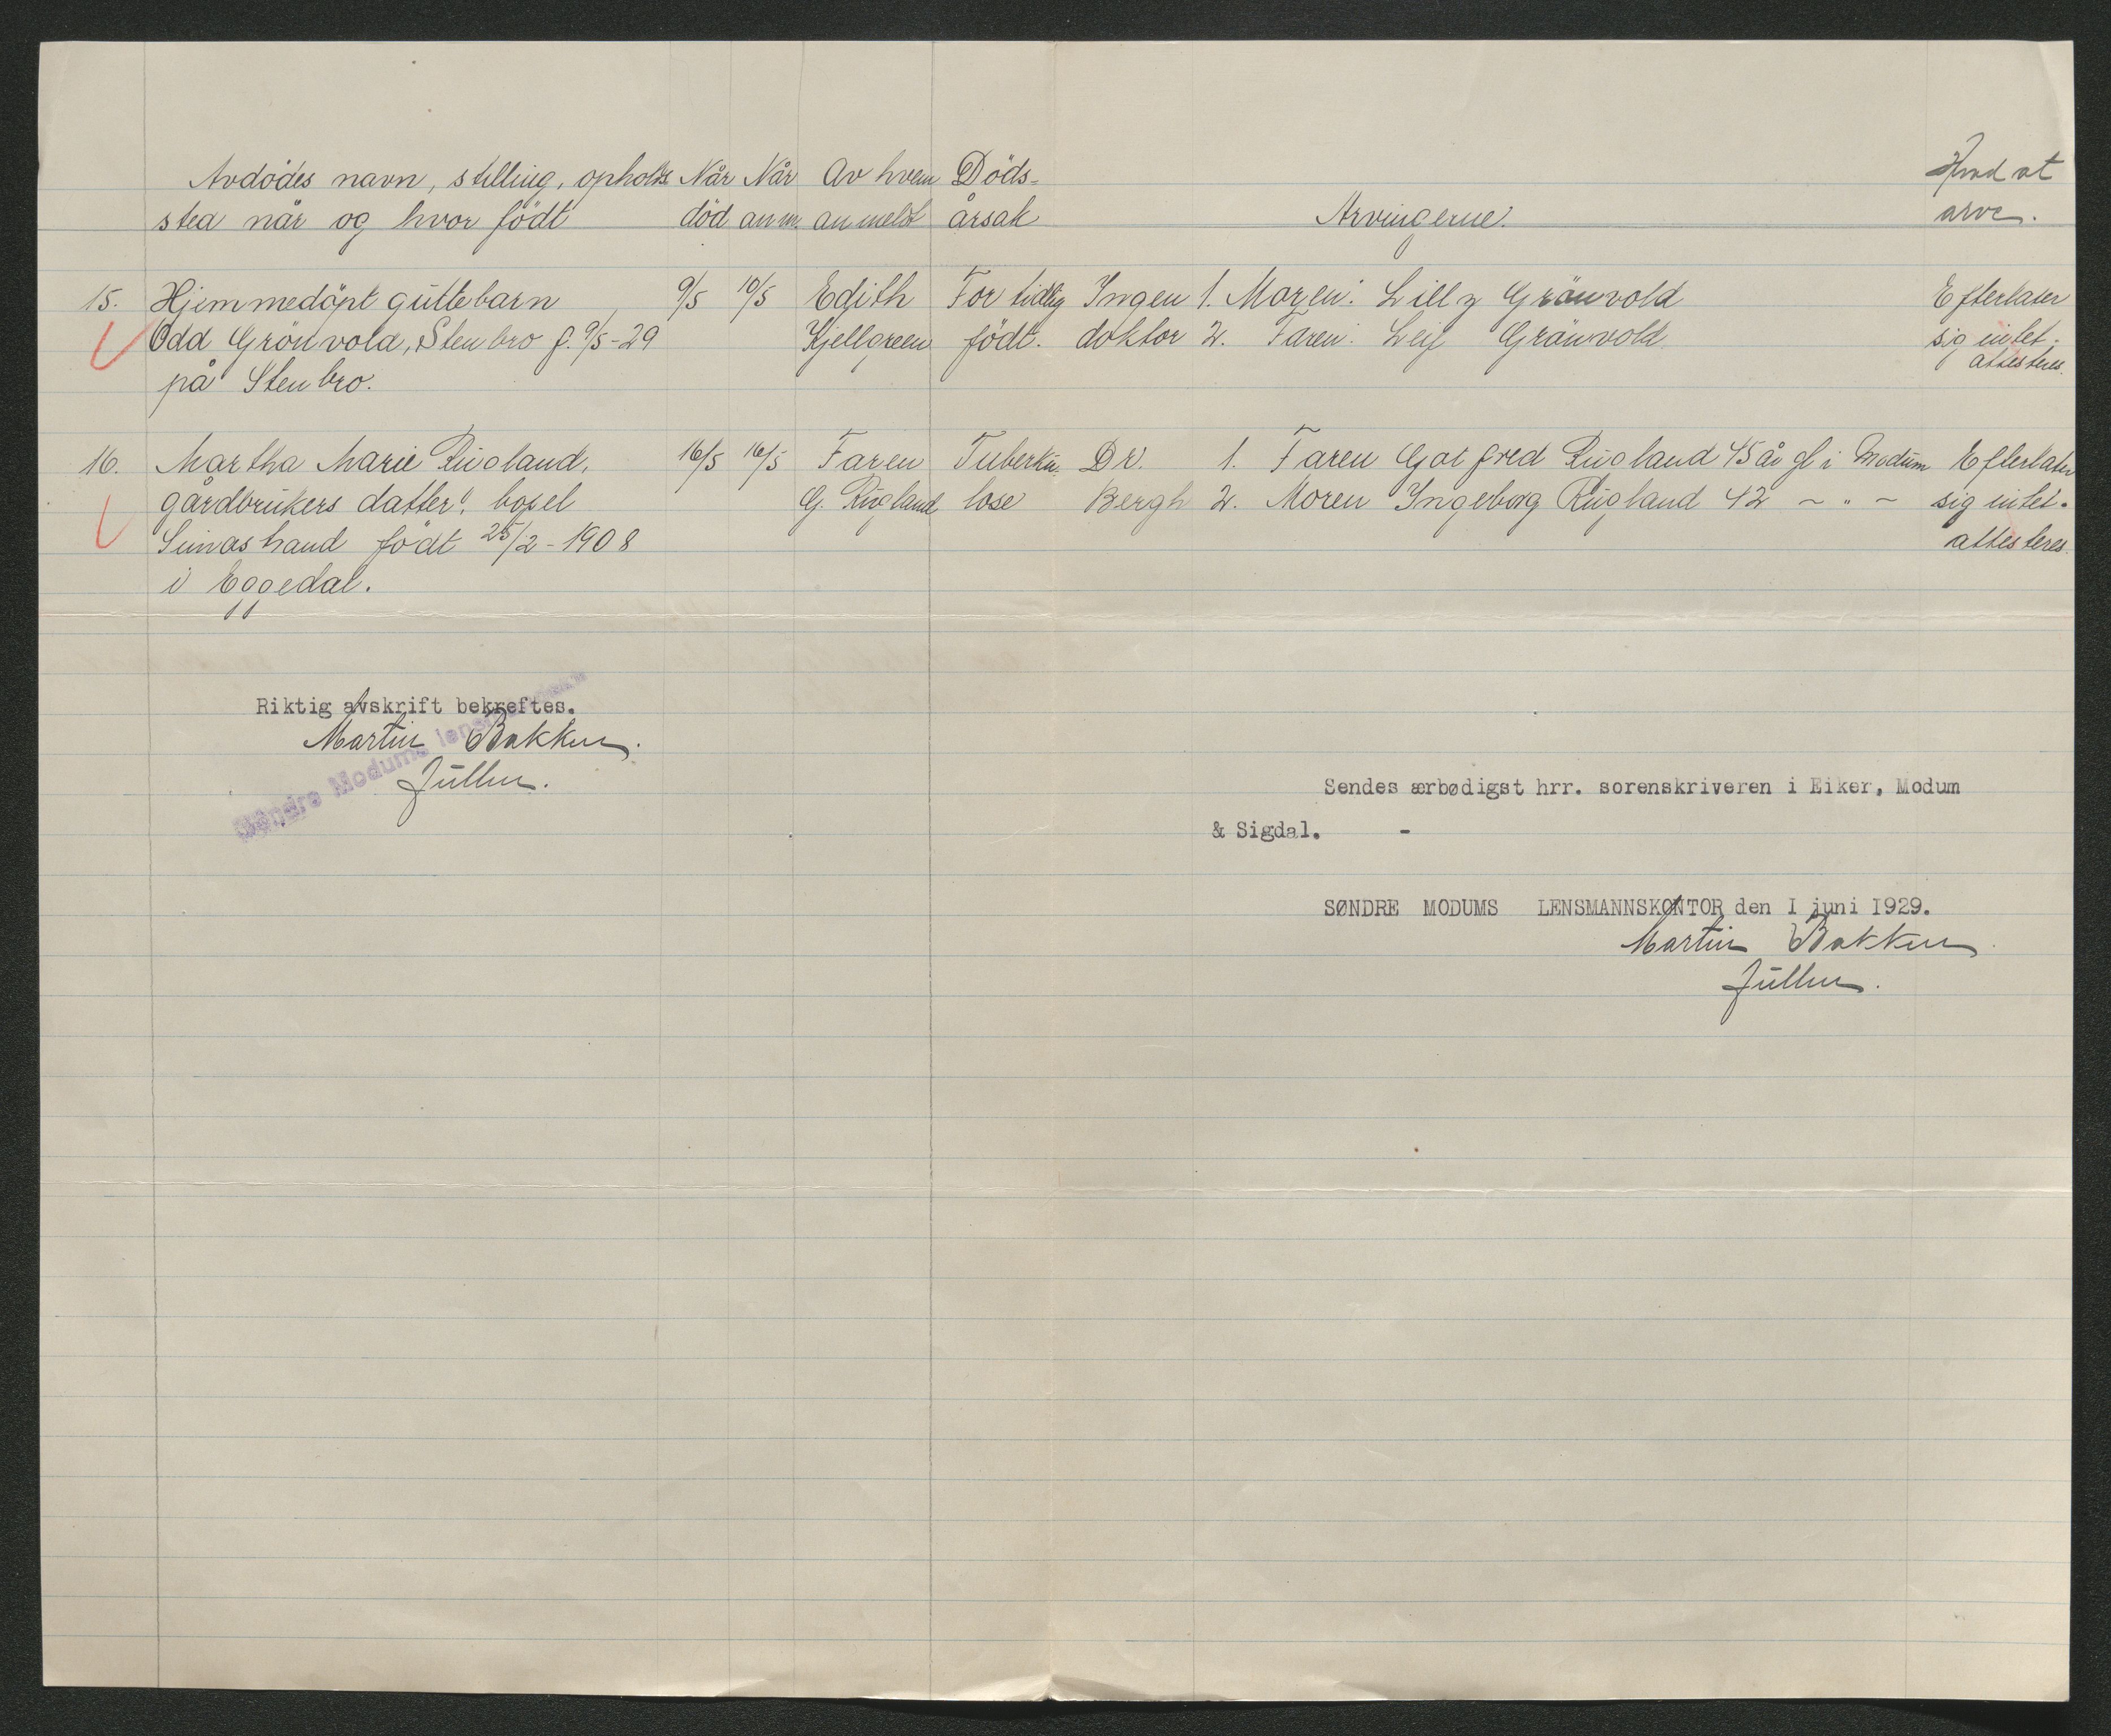 Avdödes navn, stilling, opholds Når Når Av hvem Döds-
sted når og hvor født død anm. anmeldt årsak Arvingerne. Hvad at arve.
15. Hjemmedöpt guttebarn 9/5 10/5 Edith For tidlig Ingen 1. Moren: Lilly Grönvold Efterlater
Odd Grönvold, Stenbro f. 9/5-29 Kjellgreen födt. doktor 2. Faren: Leif Grönvold sig intet.
på Stenbro. attesteres.
16. Martha Marie Rugland, 16/5 16/5 Faren Tuberku Dr. 1. Faren Gotfred Rugland 45 år gl i Modum Efterlater
gårdbrukers datter, bopel G. Rugland lose Bergh 2. Moren Ingeborg Rugland 42 - " - sig intet.
født 25/2-1908 attesteres.
i Eggedal.
Riktig avskrift bekreftes.
Martin Bakken.
Søndre Modums lensmannskontor
Sendes ærbødigst hrr. sorenskriveren i Eiker, Modum
& Sigdal. -
SØNDRE MODUMS LENSMANNSKONTOR den I juni I929.
Martin Bakken